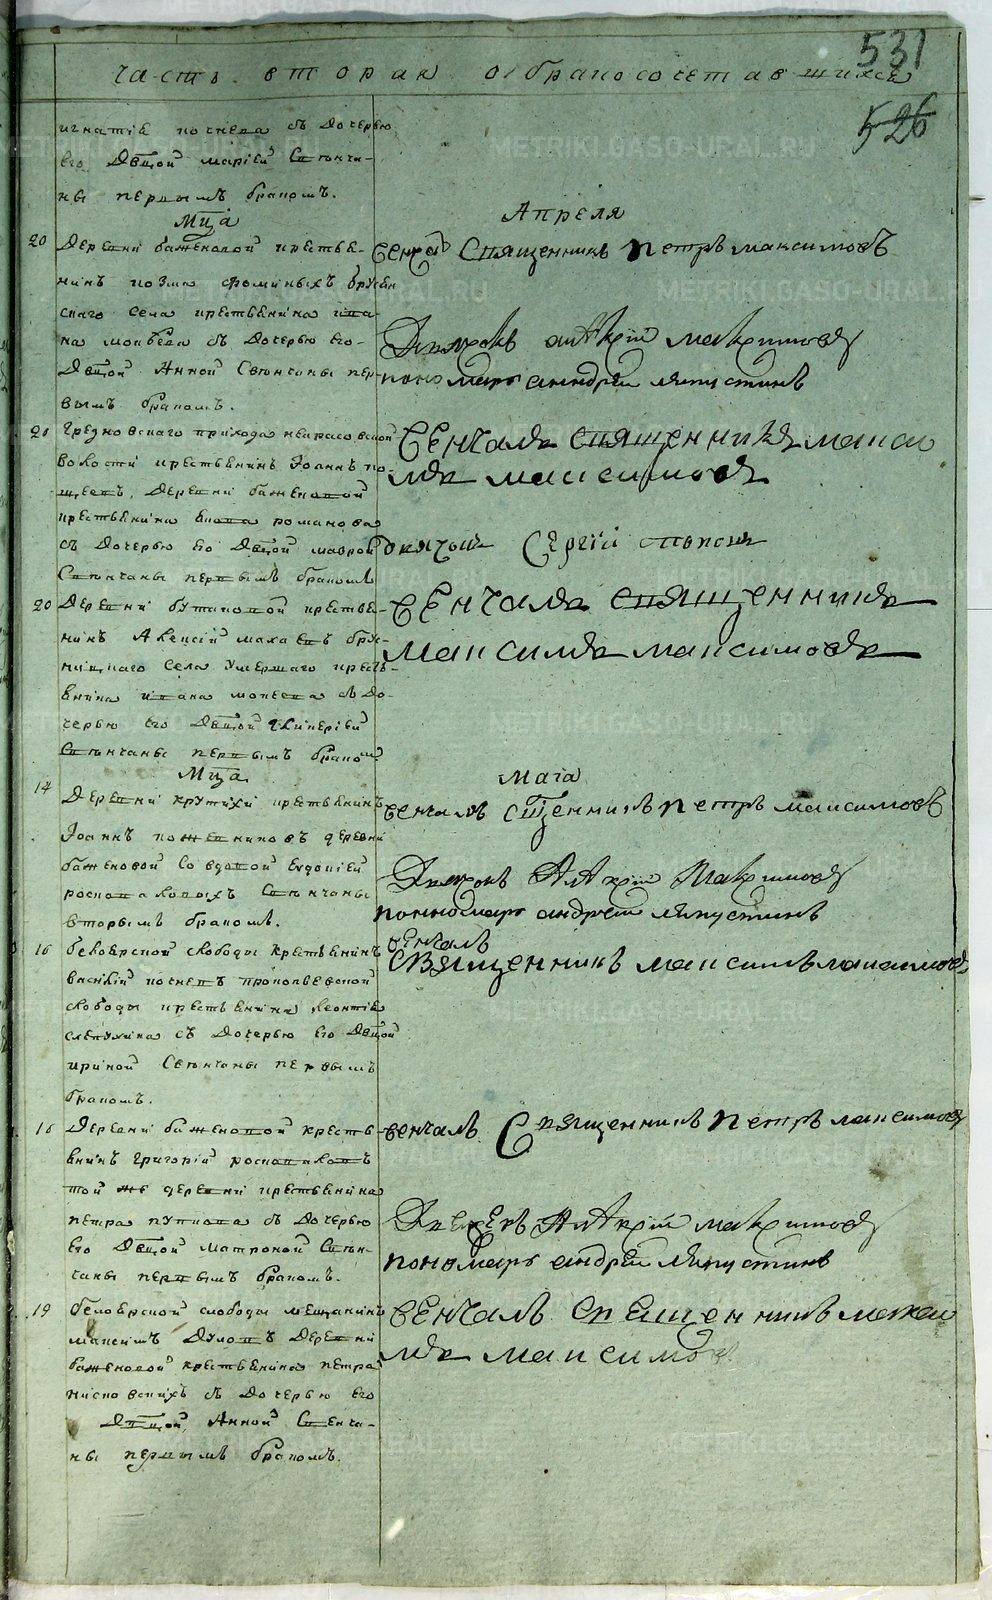 531
часть вторая о бракосочетавшихся
526
игнатiе коснева съ дочерью
его Двцой марiей Свѣнча-
ны первымъ бракомъ.
Мца Апреля
20 Деревни баженовой крестья-
нинъ козма фоминыхъ брусян
скаго села крестьянина ива-
на моквеева съ дочерью его
Двцой Анной Свѣнчаны пер-
вымъ бракомъ.
Венчал Священникъ петръ максимовъ
Дьяконъ максимовъ
пономарь андрей ляпустинъ
20 грезновскаго прихода некрасовской
волости крестьянинъ Iоаннъ
деревни баженовой
крестьянина романова
съ дочерью его Двцой маврой
Свѣнчаны первымъ бракомъ
Венчалъ священникъ макси
мъ максимовъ
дьячокъ Сергiй поповъ
20 Деревни бутаковой крестья-
нинъ Алексiй махаевъ брус-
ницкаго села умершаго кресть-
янина ивана мокеева съ до-
черью его Двцой
Свѣнчаны первымъ бракомъ
Венчалъ священникъ
максимъ максимовъ
Мца Маiа
14 Деревни крутихи крестьянинъ
Iоаннъ кожевниковъ деревни
баженовой со вдовой Евдокiей
роспопаловыхъ Свѣнчаны
вторымъ бракомъ.
венчалъ Сщенникъ петръ максимовъ
Дьяконъ Максимовъ
пономарь андрей ляпустинъ
16 белоярской слободы крестьянинъ
василiй косневъ
слободы крестьянина леонтiя
слепухина съ дочерью его Двцой
ириной Свѣнчаны первымъ
бракомъ.
венчалъ
священникъ максимъ максимовъ
16 Деревни баженовой кресть-
янинъ григорiй роспопаловъ
той же деревни крестьянина
петра съ дочерью
его Двцой матроной Свѣн-
чаны первымъ бракомъ.
венчалъ Священникъ петръ максимовъ
максимовъ
пономарь андрей ляпустинъ
19 белоярской слободы мещанинъ
максимъ деревни
баженовой крестьянина петра
съ дочерью его
Двцой Анной Свенча-
ны первымъ бракомъ.
венчалъ священникъ макси
мъ максимовъ